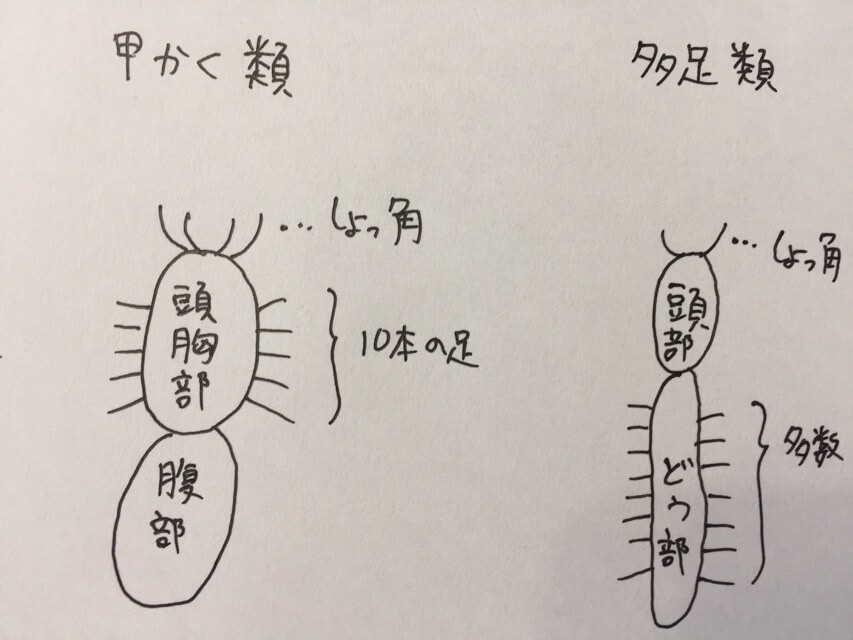 甲かく類
…しょっ角
頭
胸
部
10本の足
腹
部
多足類
…しょっ角
頭
部
ど
う
部
多数